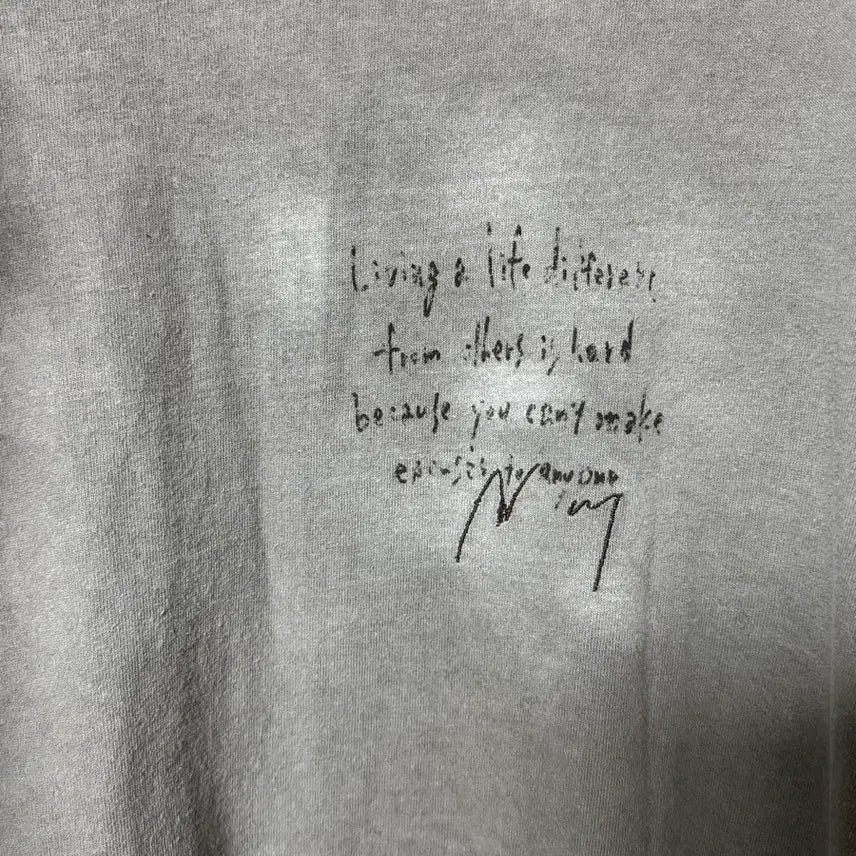 Living a life different
from others is hard
because you can't make
to anyone